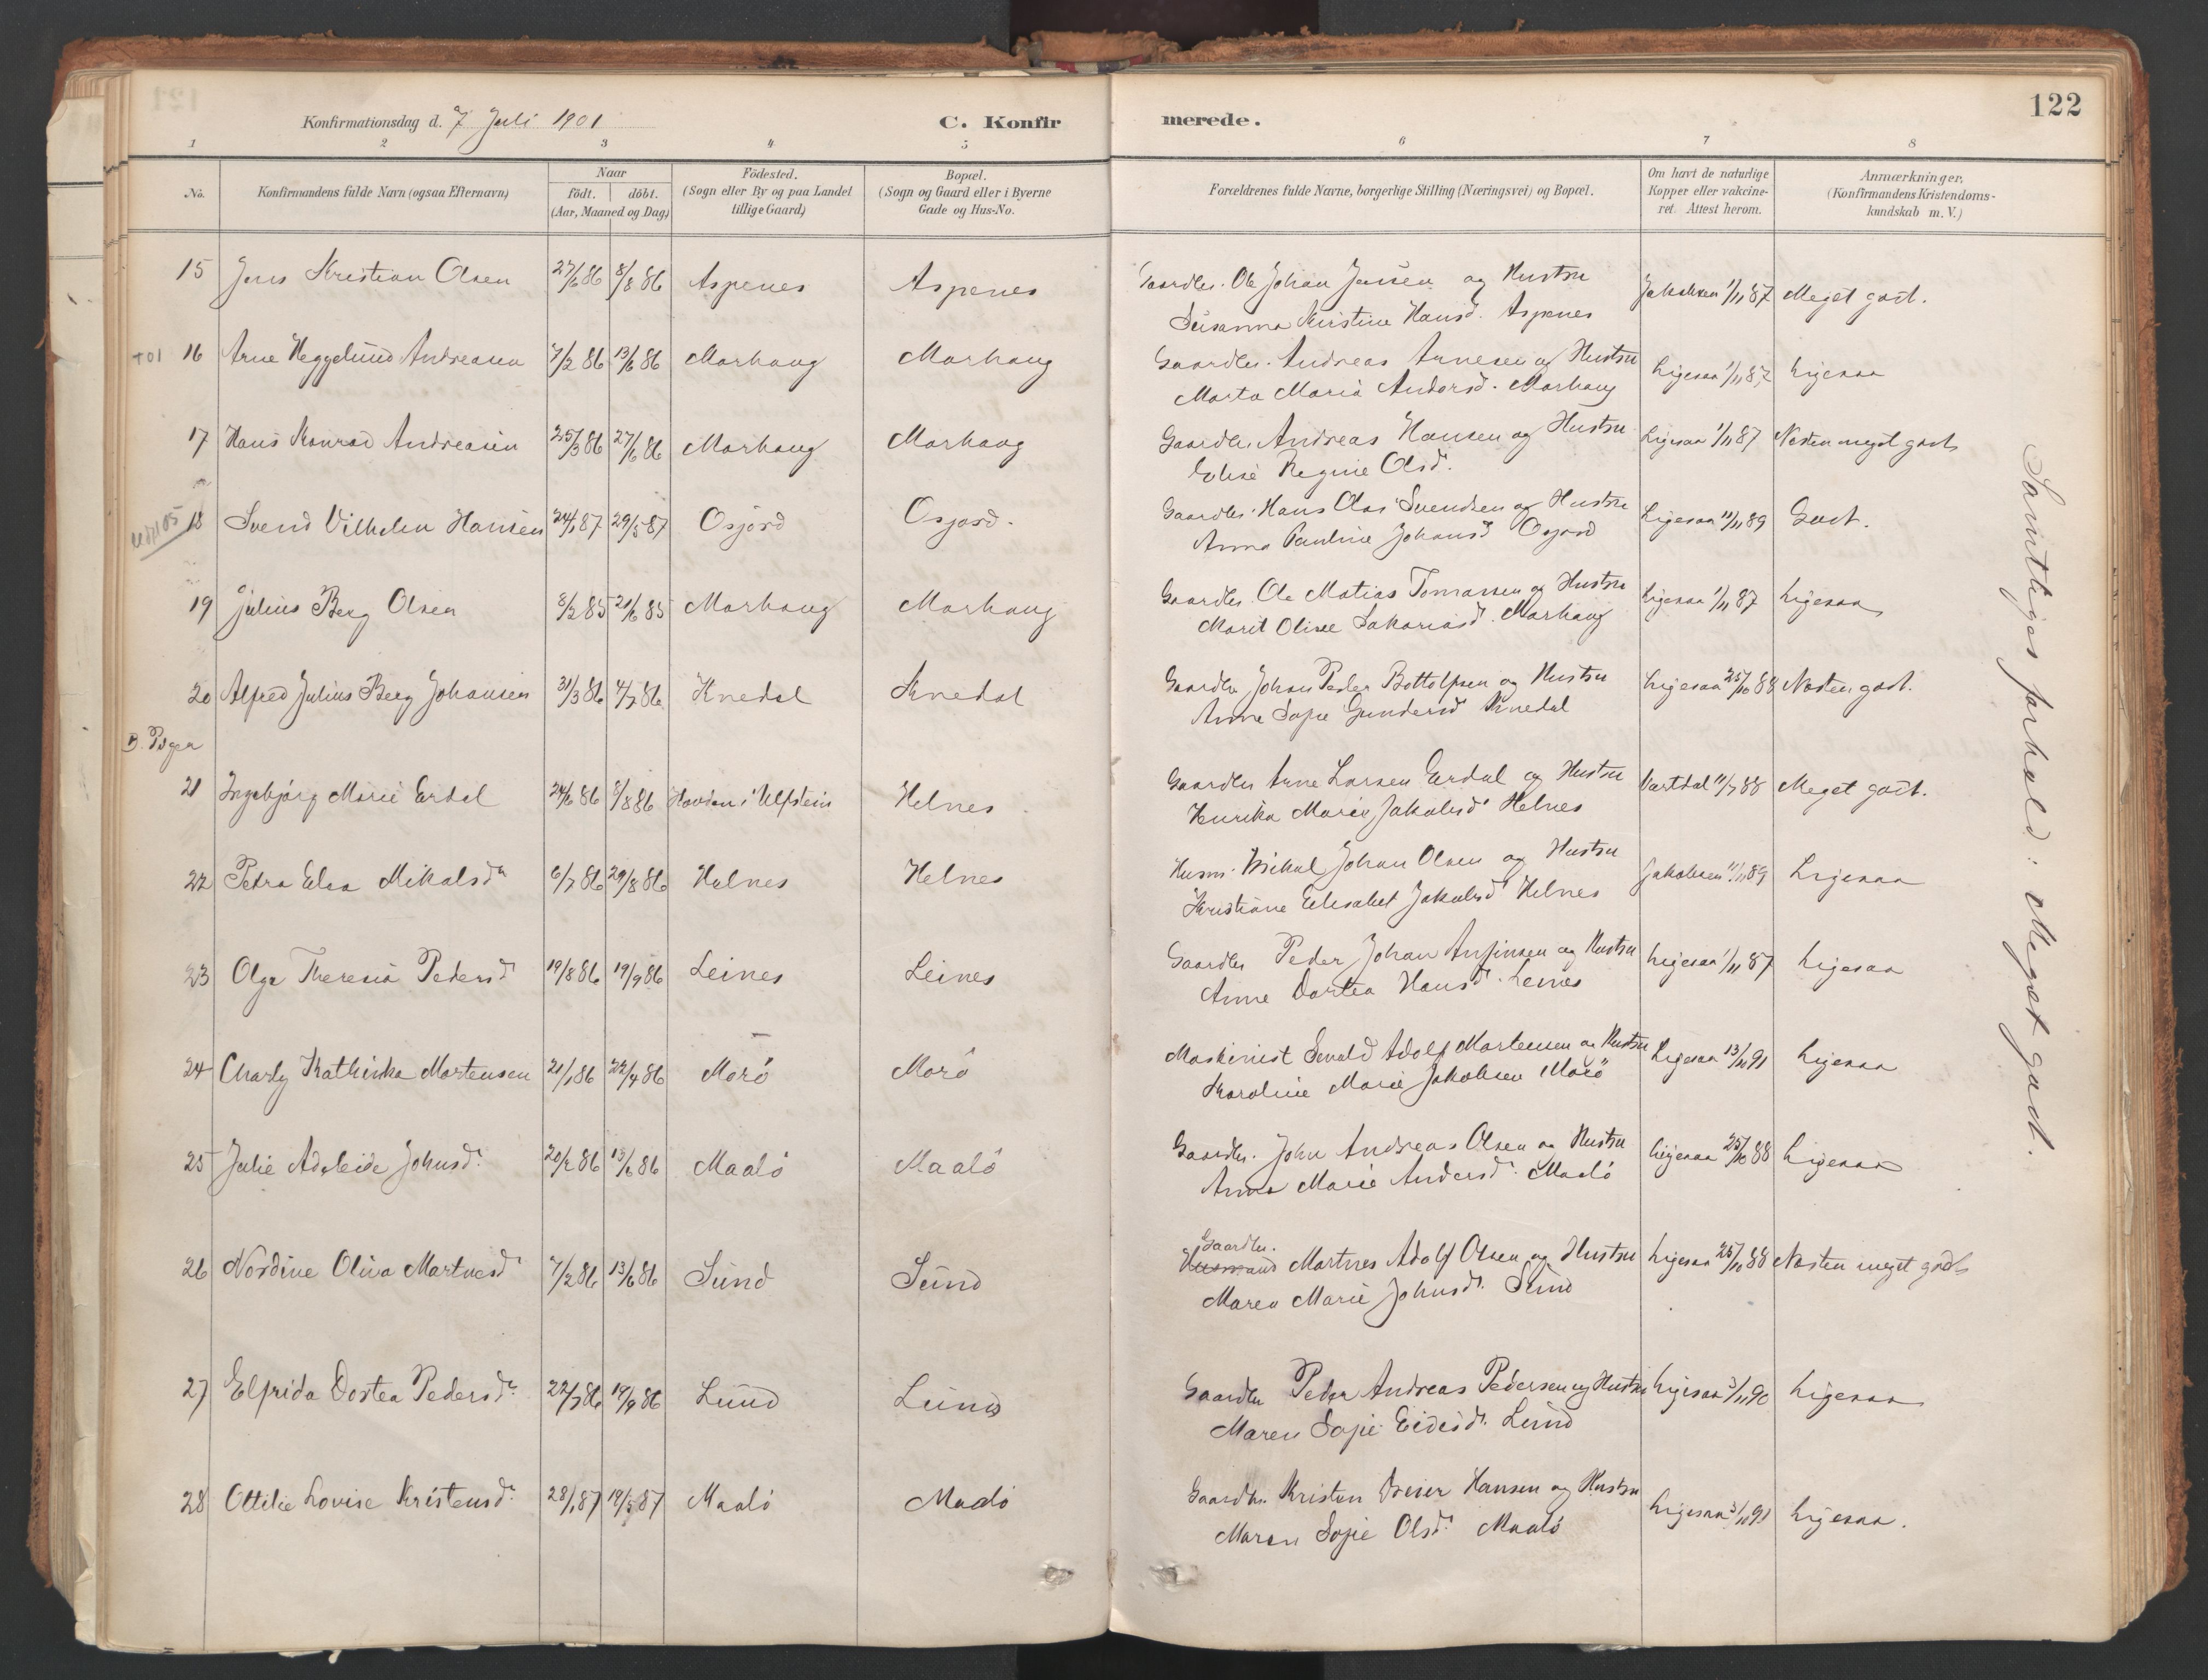 122
Konfirmationsdag d. 7 Juli 1901
C. Konfirmerede.
1 2 3 4 5 6 7 8
No.
Konfirmandens fulde Navn (ogsaa Efternavn)
Naar
födt. döbt.
(Aar, Maaned og Dag)
Födested.
(Sogn eller By og paa Landet
tillige Gaard)
Bopæl.
(Sogn og Gaard eller i Byerne
Gade og Hus-No.
Forældrenes fulde Navne, borgerlige Stilling (Næringsvei) og Bopæl.
Om havt de naturlige
Kopper eller vakcine-
ret. Attest herom.
Anmærkninger,
(Konfirmandens Kristendoms-
kundskab m. V.)
15 Jens Kristian Olsen 27/6 86 8/8 86 Aspenes Aspenes Gaardbr. Ole Johan Jensen og Hustru Jakobsen 1/11 87 Meget godt.
Susanna Kristine Hansd. Aspenes
+01 16 Arne Heggelund Andreasen 7/2 86 13/6 86 Marhaug Marhaug Gaardbr. Andreas Arnesen og Hustru Ligesaa 1/11 87 Ligesaa
Marta Maria Andersd. Marhaug
17 Hans Konrad Andreasen 25/3 86 27/6 86 Marhaug Marhaug Gaardbr. Andreas Hansen og Hustru Ligesaa 1/11 87 Næsten meget godt
Elise Regine Olsd.
18 Svend Vilhelm Hansen 24/1 87 29/5 87 Osjord Osjord. Gaardbr. Hans Olai Svendsen og Hustru Ligesaa 11/11 89 Godt.
Anna Pauline Johansd. Osjord
19 Julius Berg Olsen 8/2 85 21/6 85 Marhaug Marhaug Gaardbr. Ole Matias Tomassen og Hustru Ligesaa 1/11 87 Ligesaa
Marit Olise Sakariasd. Marhaug
20 Alfred Julius Berg Johansen 31/3 86 4/7 86 Knedal Knedal Gaardbr. Johan Peder Bottolfsen og Hustru Ligesaa 25/10 88 Næsten godt.
Anne Sofie Gundersd. Knedal
B. Piger
21 Ingebjörg Marie Erdal 24/6 86 8/8 86 Hovden i Ulfstein Helnes Gaardbr Arne Larsen Erdal og Hustru Vartdal 11/7 88 Meget godt.
Henrika Marie Jakobsd. Helnes
22 Petra Elea Mikalsdr 6/7 86 29/8 86 Helnes Helnes Husm. Mikal Johan Olsen og Hustru Jakobsen 11/11 89 Ligesaa
Kristiane Elisabet Jakobsd. Helnes
23 Olga Theresia Pedersd. 19/8 86 19/9 86 Leines Leines Gaardbr Peder Johan Anfinsen og Hustru Ligesaa 1/11 87 Ligesaa
Anne Dortea Hansd. Leines
24 Charly Kathinka Mortensen 21/1 86 22/4 86 Morö Morö Maskinist Sevald Adolf Mortensen og Hustru Ligesaa 13/10 91 Ligesaa
Karoline Marie Jakobsen Morö
25 Julie Adeleide Johnsd. 20/2 86 13/6 86 Maalö Maalö Gaardbr. John Andreas Olsen og Hustru Ligesaa 25/10 88 Ligesaa
Anna Marie Andersd. Maalö
Gaardbr.
26 Nordine Oliva Martnesd. 7/2 86 13/6 86 Sund Sund Husmand Martnes Adolf Olsen og Hustru Ligesaa 25/10 88 Næsten meget godt
Maren Marie Johnsd. Sund
27 Elfrida Dortea Pedersd. 22/7 86 19/9 86 Lund Lund Gaardbr Peder Andreas Pedersen og Hustru Ligesaa 3/11 90 Ligesaa
Maren Sofie Eidisd. Lund
28 Ottilie Lovise Kristensd. 28/1 87 19/5 87 Maalö Maalö Gaardbr. Kristen Dreier Hansen og Hustru Ligesaa 3/10 91 Ligesaa.
Maren Sofie Olsd. Maalö
Samtliges forhold: Meget godt.